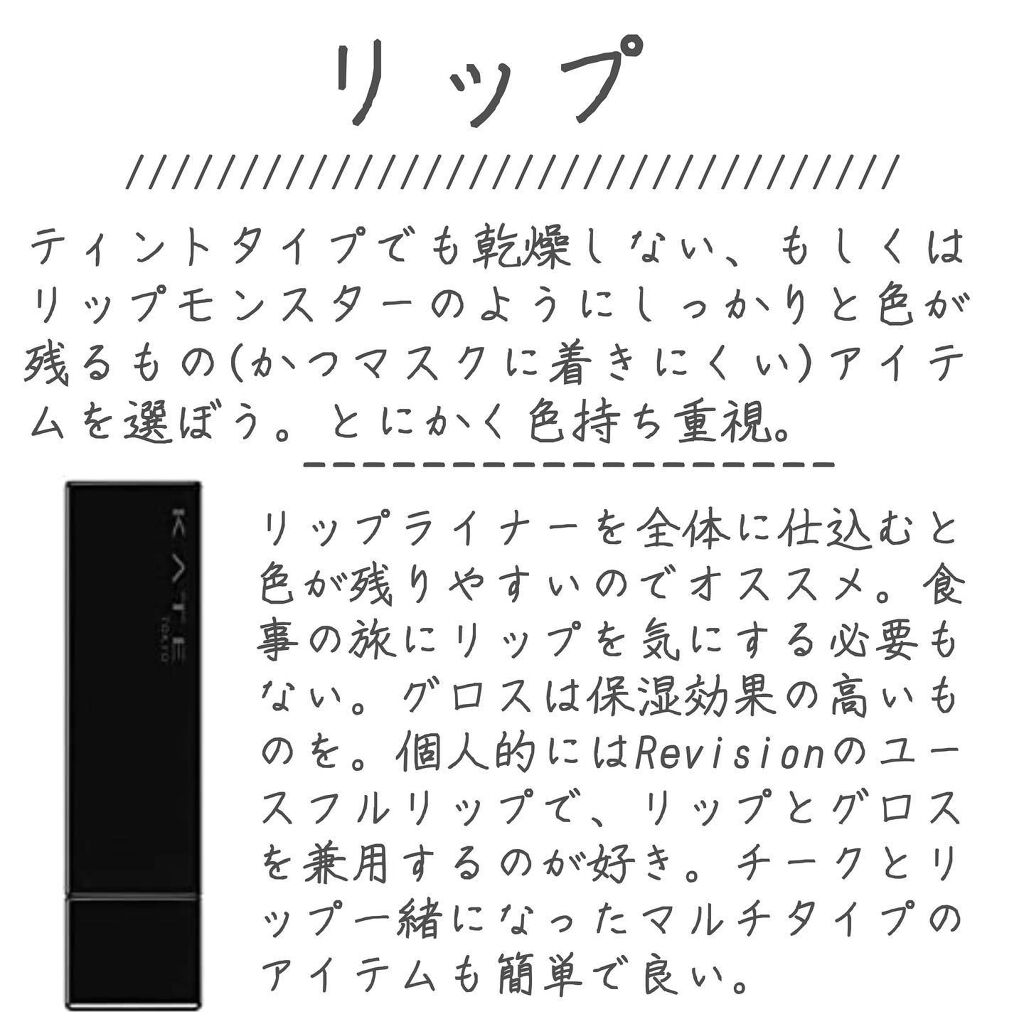 リップ
ティントタイプでも乾燥しない、もしくは
リップモンスターのようにしっかりと色が
残るもの(かつマスクに着きにくい)アイテ
ムを選ぼう。とにかく色持ち重視。
KATE
TOKYO
リップライナーを全体に仕込むと
色が残りやすいのでオススメ。食
事の旅にリップを気にする必要も
ない。グロスは保湿効果の高いも
のを。個人的にはRevisionのユー
スフルリップで、リップとグロス
を兼用するのが好き。チークとリ
ップ一緒になったマルチタイプの
アイテムも簡単で良い。